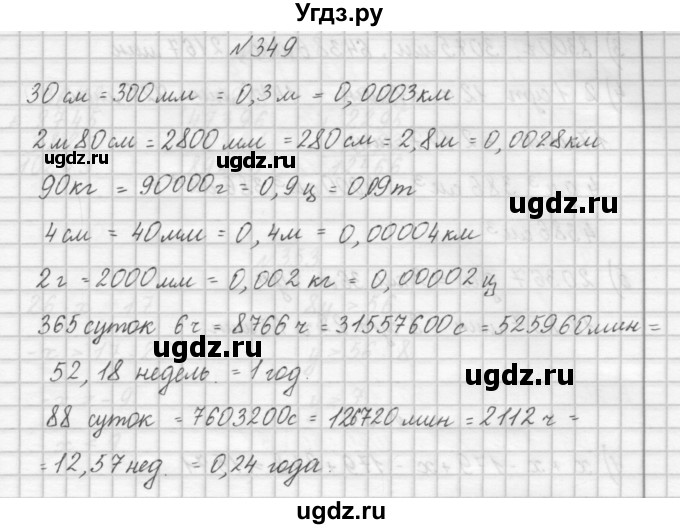 Угдз.ру
№349
30 см = 300 мм = 0,3 м = 0,0003 км
2 м 80 см = 2800 мм = 280 см = 2,8 м = 0,0028 км
ugdz.ru ugdz.ru
90 кг = 90000 г = 0,9 ц = 0,09 т
ugdz.ru
4 см = 40 мм = 0,4 м = 0,00004 км
2 г = 2000 мм = 0,002 кг = 0,00002 ц
365 суток 6 ч = 8766 ч = 31557600 с = 525960 мин =
ugdz.ru
52,18 недель. = 1 год.
ugdz.ru
88 суток = 7603200 с = 126720 мин = 2112 ч =
= 12,57 нед. = 0,24 года.
ugdz.ru